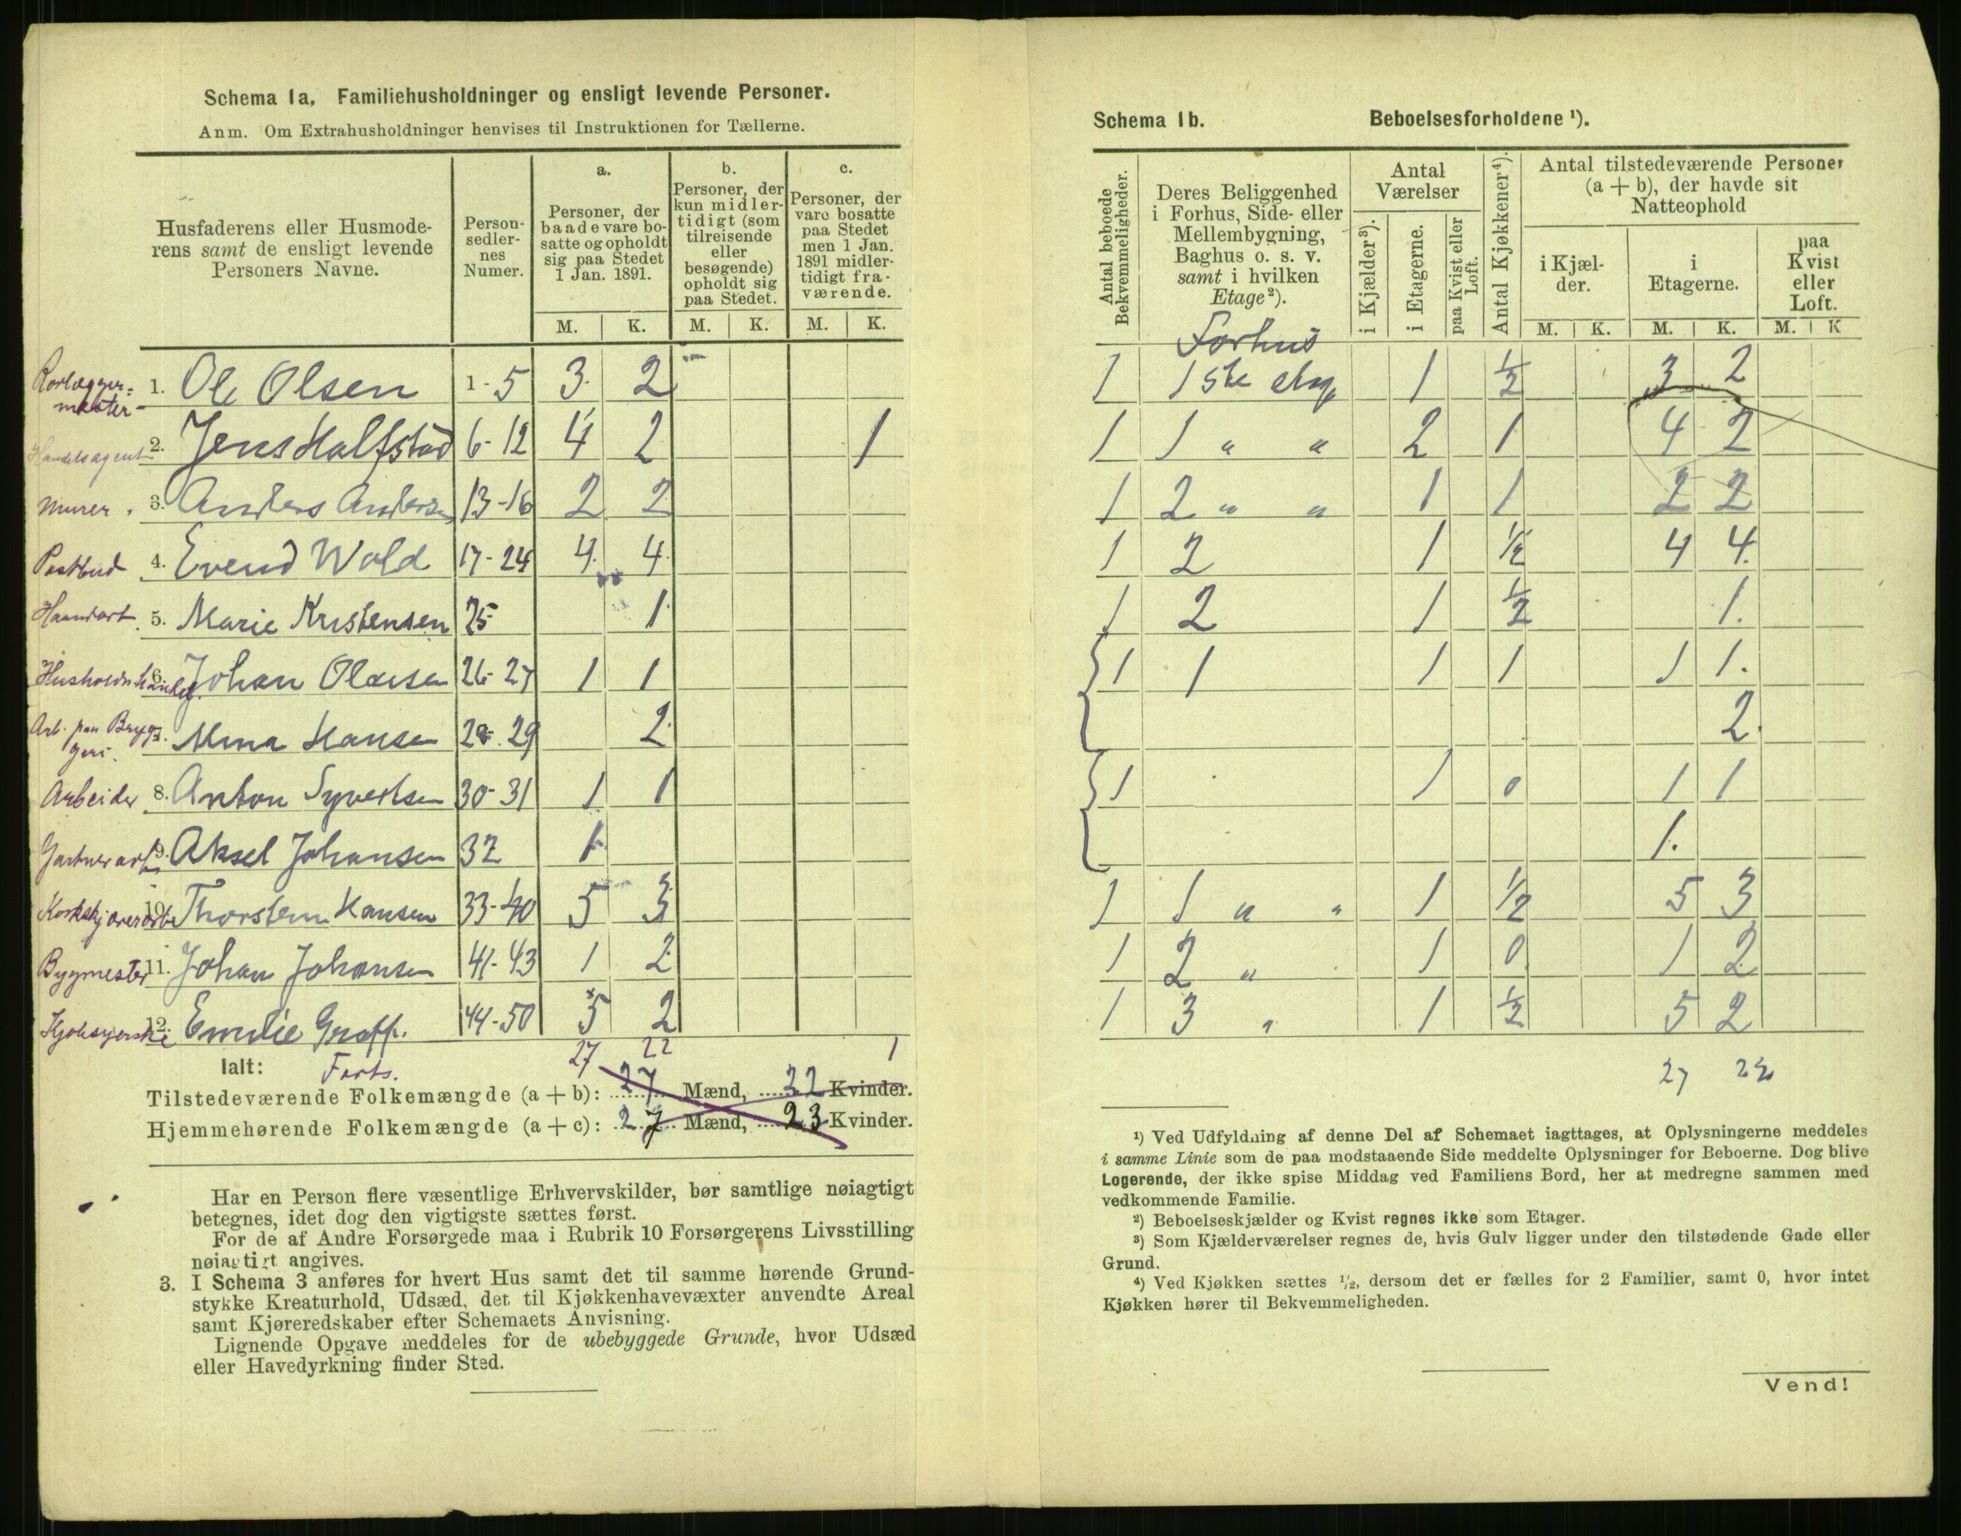 Schema 1a, Familiehusholdninger og ensligt levende Personer.
Anm. Om Extrahusholdninger henvises til Instruktionen for Tællerne.
Husfaderens eller Husmode-
rens samt de ensligt levende
Personers Navne.
Person-
sedler-
nes
Numer.
a.
Personer, der
baade vare bo-
satte og opholdt
sig paa Stedet
1 Jan. 1891.
b.
Personer, der
kun midler-
tidigt (som
tilreisende
eller
besøgende)
opholdt sig
paa Stedet.
c.
Personer, der
vare bosatte
paa Stedet
men 1 Jan.
1891 midler-
tidigt fra-
værende.
M. K. M. K. M. K.
Rorlægger=
mester 1. Ole Olsen 1-5 3 2
Handelsagent 2. Jens Halfstad 6-12 4 2 1
Murer 3. Anders Andersen 13-16 2 2
Postbud 4. Evend Wold 17-24 4 4
Haandarb. 5. Marie Kristensen 25 1
6. Johan Olausen 26-27 1 1
Arb. paa Bryg=
geri. 7. Mina Hansen 28-29 2
Arbeider 8. Anton Syvertsen 30-31 1 1
Gartnerarb 9. Aksel Johansen 32 1
10. Thorstein Hansen 33-40 5 3
Bygmester 11. Johan Johansen 41-43 1 2
Kjolesyerske 12. Emilie Graff. 44-50 5 2
Ialt: Forts. 27 22 1
Tilstedeværende Folkemængde (a + b): 27 Mænd, 22 Kvinder.
Hjemmehørende Folkemængde (a + c): 27 Mænd, 23 Kvinder.
Har en Person flere væsentlige Erhvervskilder, bør samtlige nøiagtigt
betegnes, idet dog den vigtigste sættes først.
For de af Andre Forsørgede maa i Rubrik 10 Forsørgerens Livsstilling
nøiagtigt angives.
3. I Schema 3 anføres for hvert Hus samt det til samme hørende Grund-
stykke Kreaturhold, Udsæd, det til Kjøkkenhavevæxter anvendte Areal
samt Kjøreredskaber efter Schemaets Anvisning.
Lignende Opgave meddeles for de ubebyggede Grunde, hvor Udsæd
eller Havedyrkning finder Sted.
Schema 1b. Beboelsesforholdene ¹).
Antal beboede
Bekvemmeligheder.
Deres Beliggenhed
i Forhus, Side- eller
Mellembygning,
Baghus o. s. v.
samt i hvilken
Etage²).
Antal
Værelser
i Kjælder³).
i Etagerne.
paa Kvist eller
Loft.
Antal Kjøkkener⁴).
Antal tilstedeværende Personer
(a + b), der havde sit
Natteophold
i Kjæl-
der.
i
Etagerne.
paa
Kvist
eller
Loft.
M. K. M. K. M. K
Forhus
1 1ste etag 1 ½ 3 2
1 1 " " 2 1 4 2
1 2 " " 1 1 2 2
1 2 1 ½ 4 4
1 2 1 ½ 1.
1 1 1 1 1 1.
2.
1 1 0 1 1
1.
1 1 " " 1 ½ 5 3
1 2 " 1 0 1 2
1 3 " 1 ½ 5 2
27 22
¹) Ved Udfyldning af denne Del af Schemaet iagttages, at Oplysningerne meddeles
i samme Linie som de paa modstaaende Side meddelte Oplysninger for Beboerne. Dog blive
Logerende, der ikke spise Middag ved Familiens Bord, her at medregne sammen med
vedkommende Familie.
²) Beboelseskjælder og Kvist regnes ikke som Etager.
³) Som Kjælderværelser regnes de, hvis Gulv ligger under den tilstødende Gade eller
Grund.
⁴) Ved Kjøkken sættes ¹/₂, dersom det er fælles for 2 Familier, samt 0, hvor intet
Kjøkken hører til Bekvemmeligheden.
Vend!